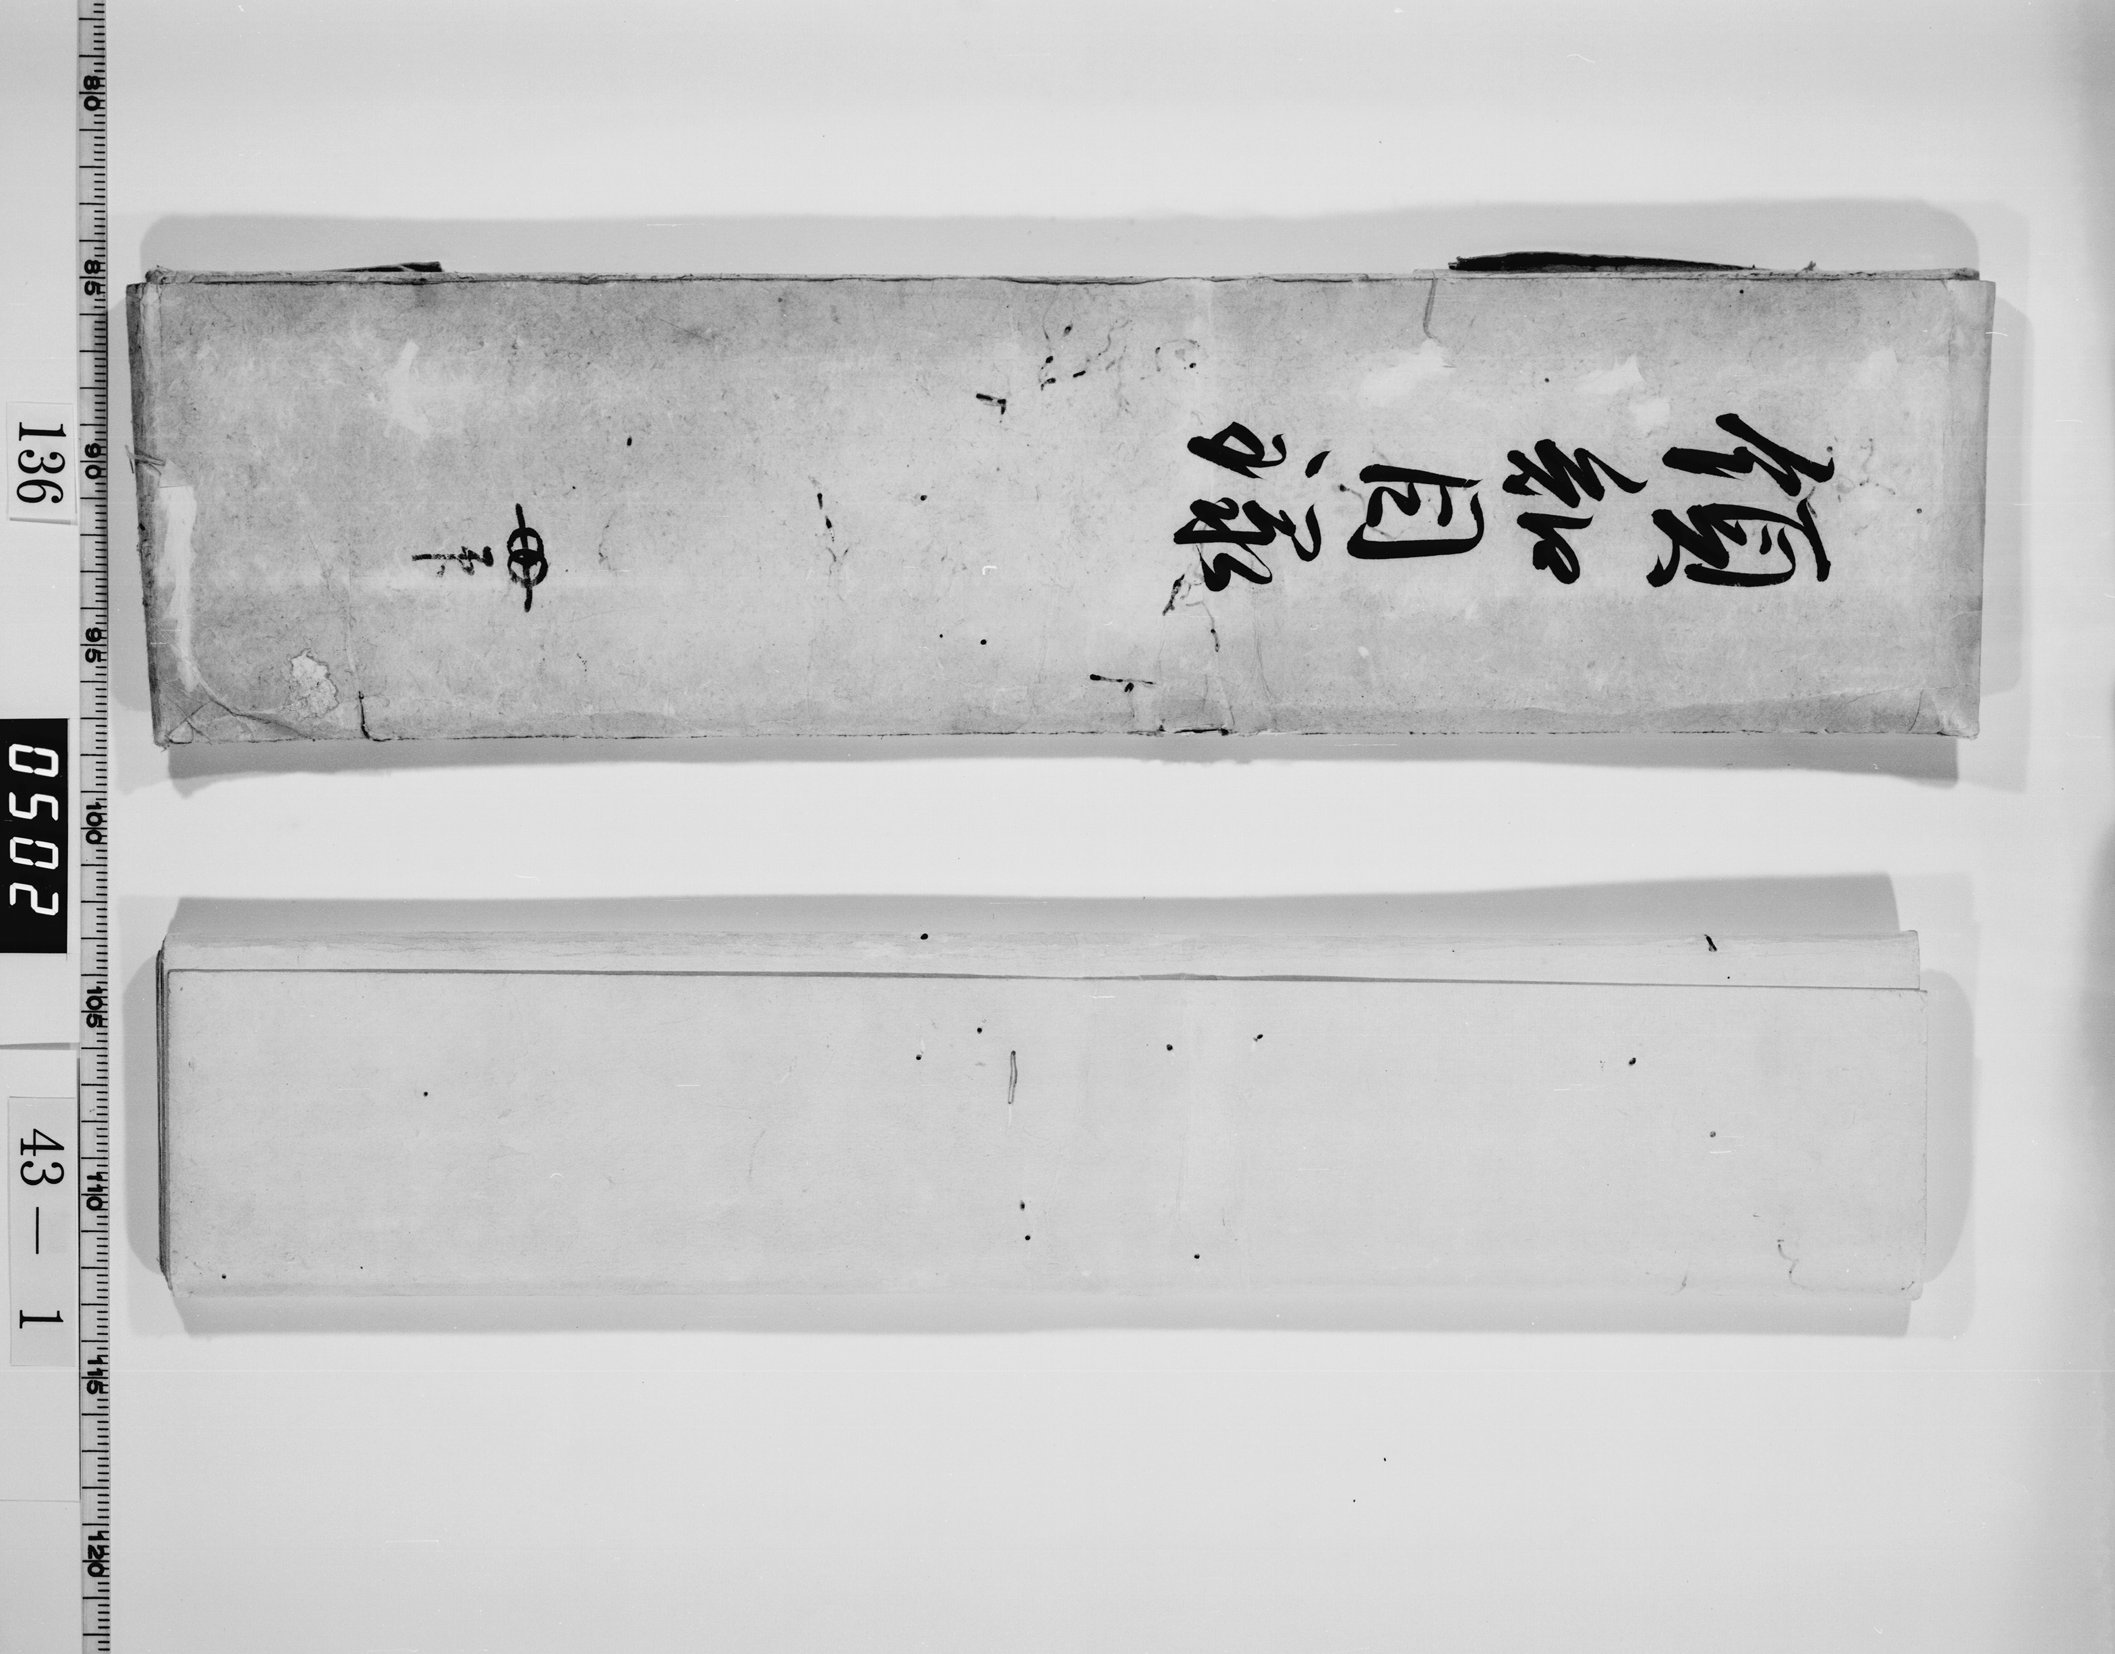 領知目録
136
0502
43—1
80 85 90 95 100 105 110 115 120